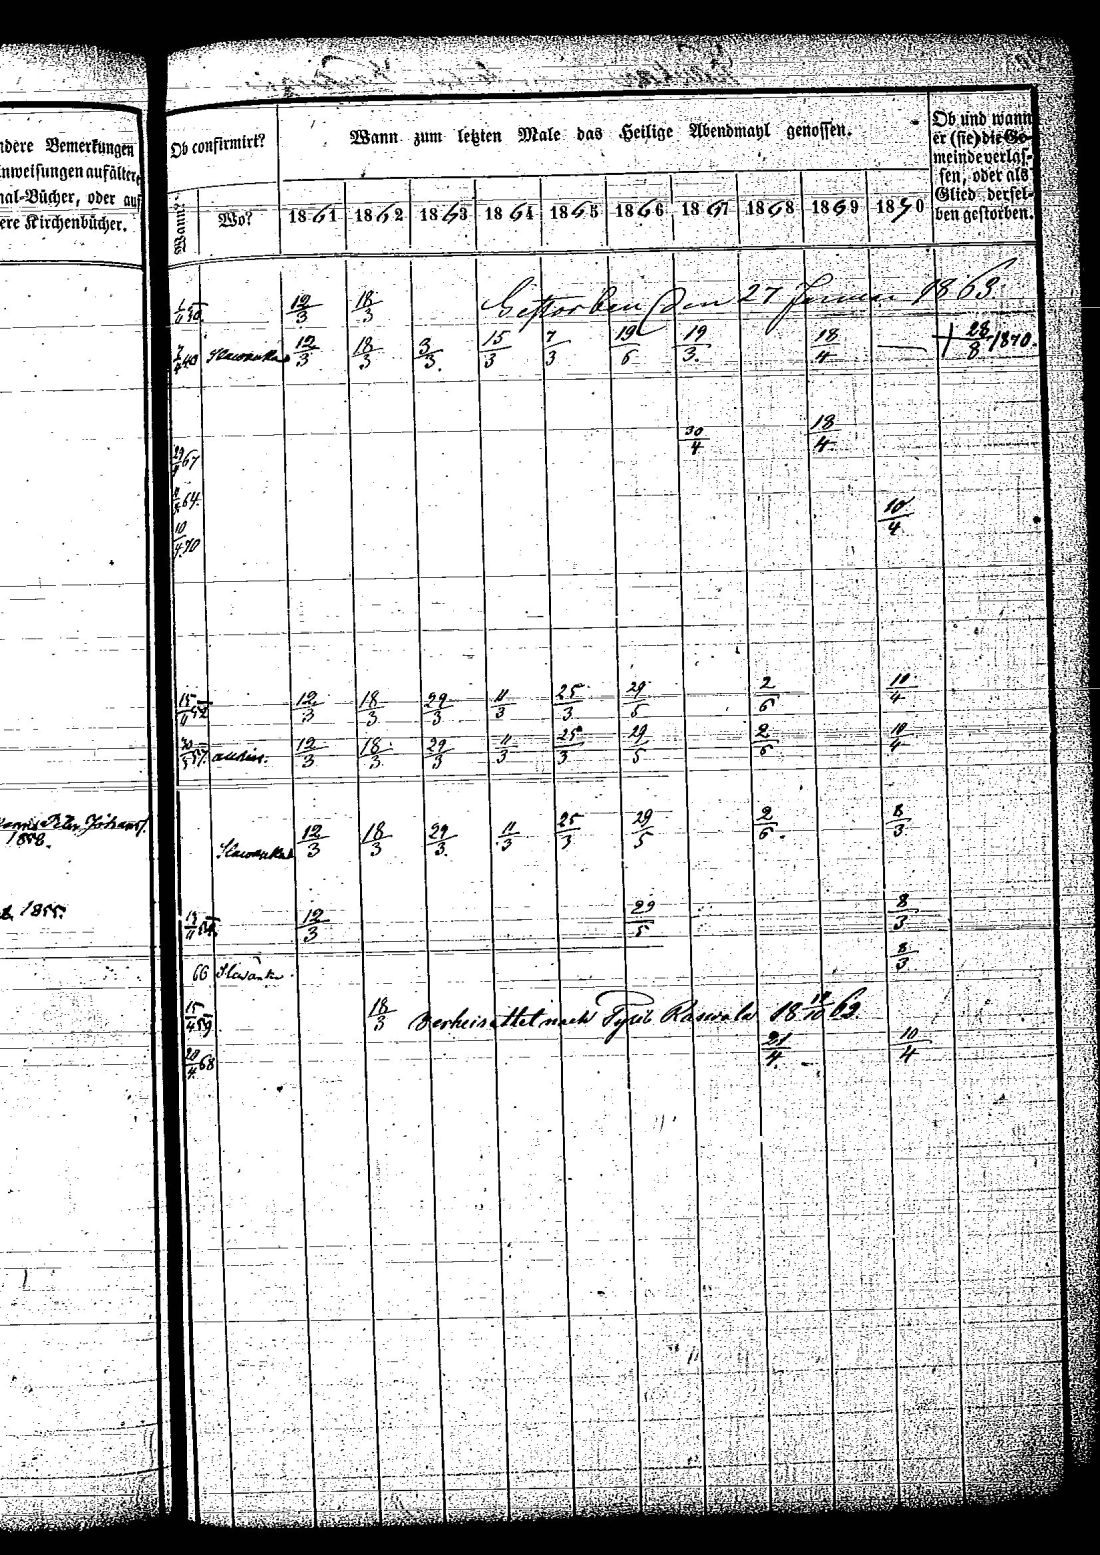 ndere Bemerkungen
nweisungen auf älter
nal-Bücher, oder auf
ere Kirchenbücher.
Ob confirmirt?
Wann?
Wo?
Wann zum letzten Male das Heilige Abendmahl genossen.
1861 1862 1863 1864 1865 1866 1867 1868 1869 1870
Ob und wann
er (sie) die Ge-
meinde verlas-
sen, oder als
Glied dersel-
ben gestorben.
12/3 18/3 Gestorben den 27 Januar 1863
12/3 18/3 3/3. 15/3 7/3 19/6 19/3. 18/4 — † 28/8 1870.
67 30/4 18/4
64.
10/4 70 10/4
12/3 18/3 29/3 11/3 25/3 29/5 2/6 10/4
12/3 18/3 29/3 11/3 25/3 29/5 2/6 10/4
1858.
12/3 18/3 29/3. 11/3 25/3 29/5 2/6. 8/3
1855.
12/3 29/5 8/3
66 8/3
15/4 59 18/3 verheirathet nach 18 /10 62
20/4. 68 21/4. 10/4